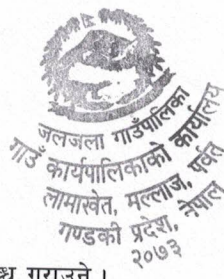 जलजला गाउँपालिका
गाउँ कार्यपालिकाको कार्यालय
लामाखेत, मल्लाज, पर्वत
गण्डकी प्रदेश, नेपाल
२०७३
गराउने ।